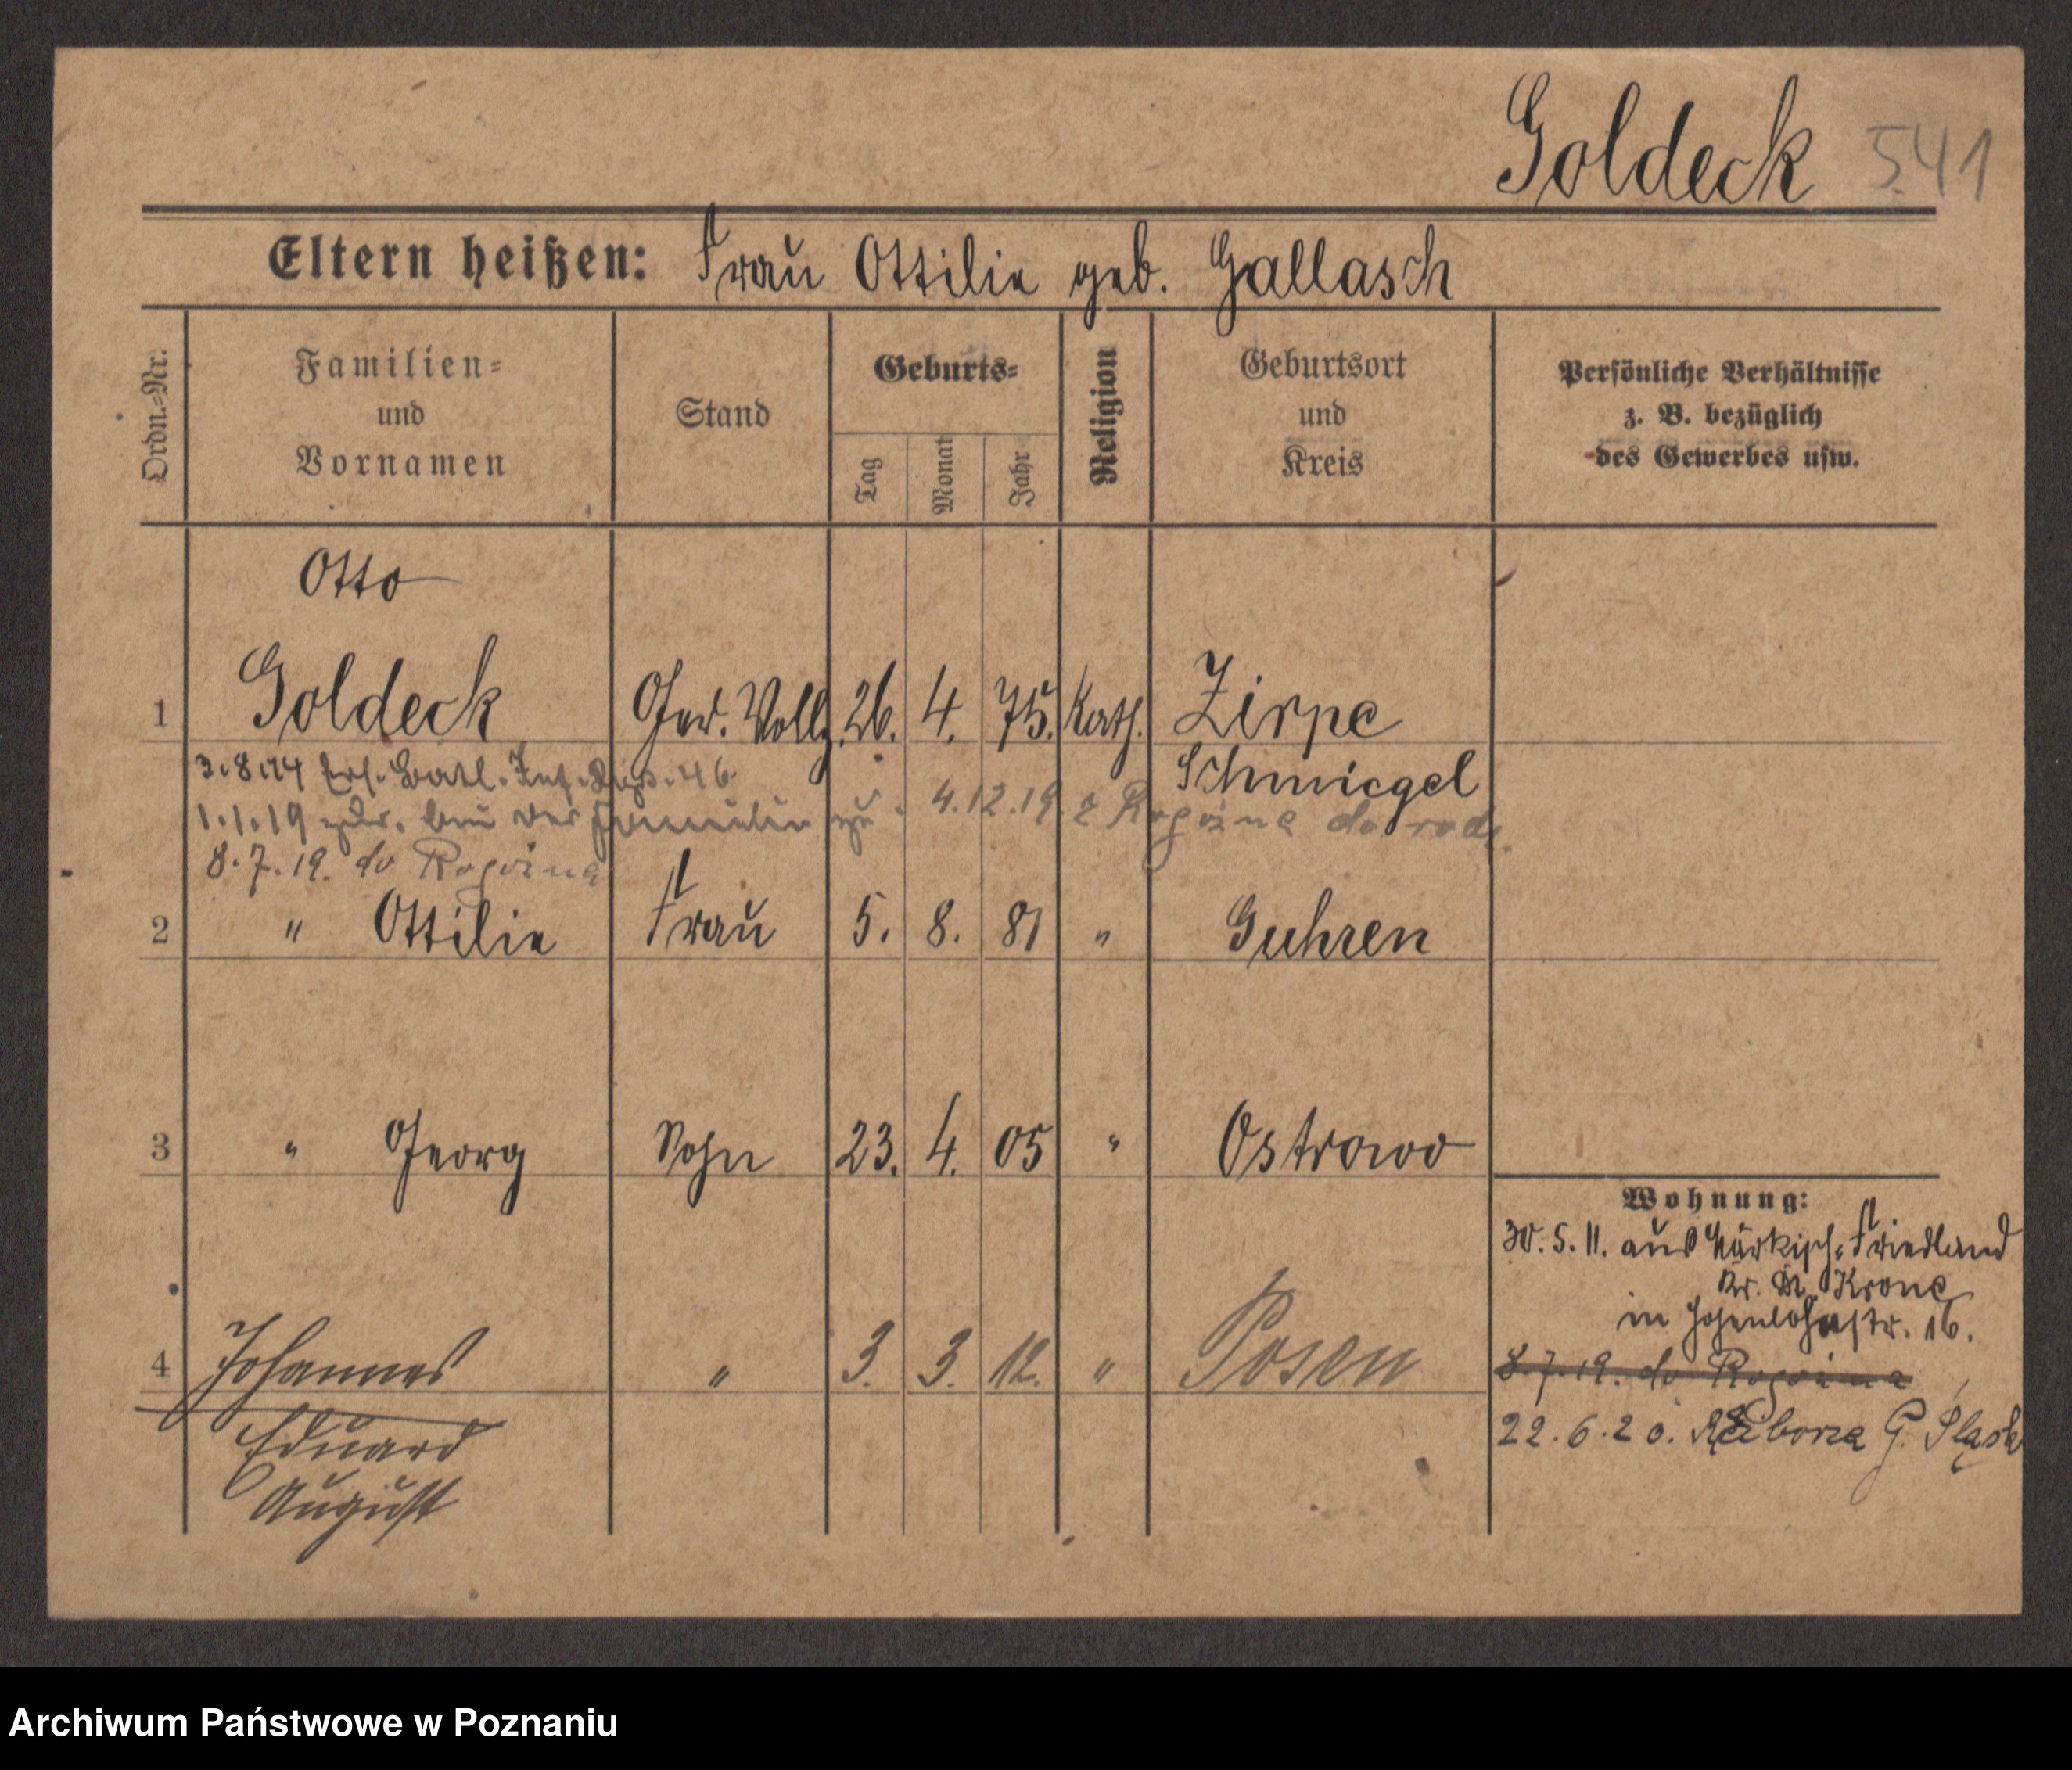 Goldeck 541
Eltern heißen: Frau Ottilie geb. Gallasch
Ordn.-Nr.
Familien-
und
Vornamen
Stand
Geburts-
Tag
Monat
Jahr
Religion
Geburtsort
und
Kreis
Persönliche Verhältnisse
z. B. bezüglich
des Gewerbes usw.
Otto
1 Goldeck Ger. Vollz. 26. 4. 75. Kath. Zirpe
Schmiegel
3.8.14 Ers. Batl. Inf. Reg. 46
1.1.19 zur. bei der Familie zu. 4.12.19 z Rogoźna do rodz.
8.7.19. do Rogoźna
2 " Ottilie Frau 5. 8. 81 " Guhren
3 " Georg Sohn 23. 4. 05 " Ostrowo
Wohnung:
30.5.11. aus Märkisch-Friedland
Kr. Dt. Krone
in Hohenlohestr. 16.
4 Johannes " 3. 3. 12. " Posen
8.7.19. do Rogoźna
Eduard
22.6.20. G. Śląsk
August
Archiwum Państwowe w Poznaniu